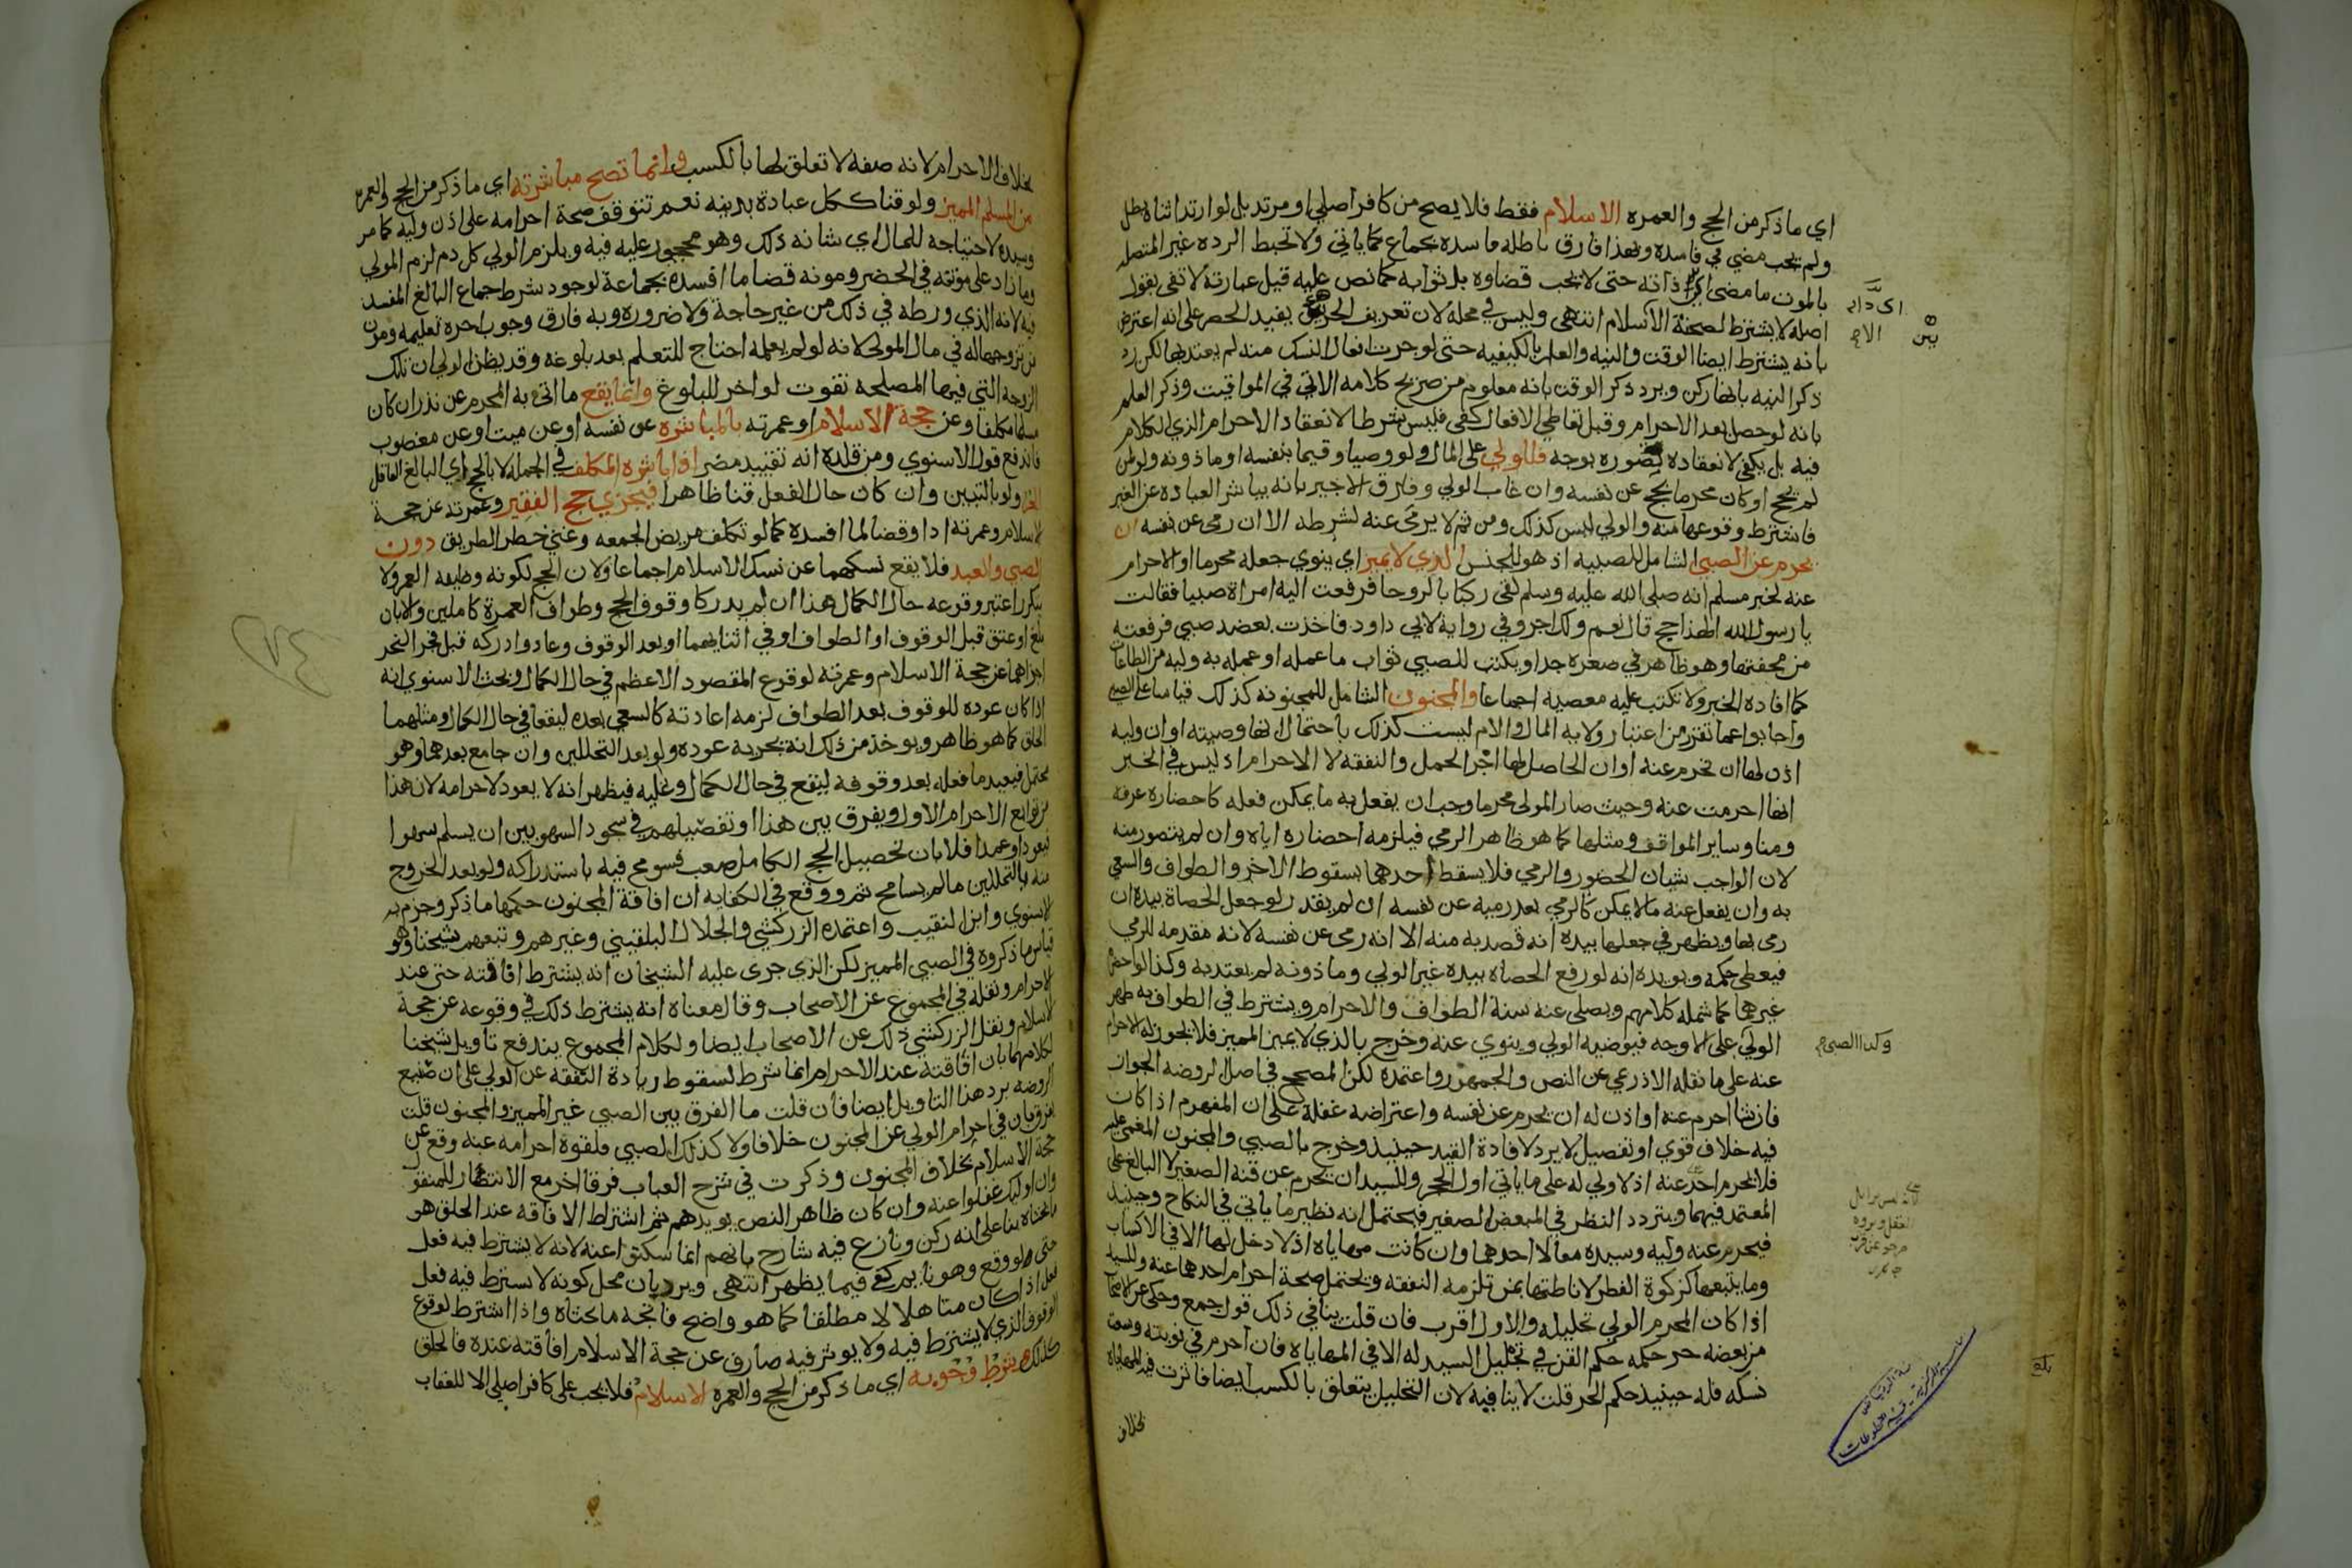 اي ما ذكر من الحج والعمره الاسلام فقط فلا يصح من كافر اصلي او مرتد بل لو ارتد اثناه بطل
ولم يجب مضي في فاسده وبهذا فارق باطله فاسده بجماع كما ياتي ولا تحبط الرده غير المتصله
بالموت ما مضى اي ذاته حتى لا يجب قضاوه بل ثوابه كما نص عليه قيل عبارته لا تفي بقول
اصله لا يشترط لصحة الاسلام انتهى وليس في محله لان تعريف الجزئين يفيد الحصر على انه اعترض
بانه يشترط ايضا الوقت والنيه والعلم بالكيفيه حتى لو جرت افعال النسك منه لم يعتد بها لكن رد
ذكر النيه بانها ركن ويرد ذكر الوقت بانه معلوم من صريح كلامه الاتي في المواقيت وذكر العلم
بانه لو حصل بعد الاحرام وقبل تعاطي الافعال كفى فليس شرطا لانعقاد الاحرام الذي الكلام
فيه بل يكفي لانعقاده تصوره بوجه فللولي على المال ولو وصيا وقيما بنفسه او ماذونه وان
لم يحج او كان محرما بحج عن نفسه وان غاب المولي وفارق الاجير بانه يباشر العباده عن الغير
فاشترط وقوعها منه والولي ليس كذلك ومن ثم لا يرمي عنه لشرطه الا ان رمى عن نفسه ان
يحرم عن الصبي الشامل للصبيه اذ هو للجنس الذي لا يميز اي ينوي جعله محرما او الاحرام
عنه لخبر مسلم انه صلى الله عليه وسلم لقي ركبا بالروحا فرفعت اليه امراة صبيا فقالت
يا رسول الله الهذا حج قال نعم ولك اجر وفي رواية لابي داود فاخذت بعضد صبي فرفعته
من محفتها وهو ظاهر في صغره جدا ويكتب للصبي ثواب ما عمله او عمله به وليه من الطاعات
كما افاده الخبر ولا تكتب عليه معصيه اجماعا والمجنون الشامل للمجنونه كذلك قياسا على الصبي
واجابوا عما تقرر من اعتبار ولايه المال والام ليست كذلك باحتمال انها وصيته او ان وليه
اذن لها ان تحرم عنه او ان الحاصل لها اجر الحمل والنفقه لا الاحرام اذ ليس في الخبر
انها احرمت عنه وحيث صار المولي محرما وجب ان يفعل به ما يمكن فعله كاحضاره عرفه
ومنا وساير المواقف ومثلها كما هو ظاهر الرمي فيلزمه احضاره اياه وان لم يتصور منه
لان الواجب شيان الحضور والرمي فلا يسقط احدهما بسقوط الاخر والطواف والسعي
به وان يفعل عنه ما لا يمكن كالرمي بعد رميه عن نفسه ان لم يقدر لو جعل الحصاة بيده ان
رمى بها ويظهر في جعلها بيده انه قصد به منه الا انه رمى عن نفسه لانه مقدمه للرمي
فيعطى حكمه ويويده انه لو رفع الحصاه بيده غير الولي وماذونه لم يعتد به وكذا لو احضره
غيرهما كما شمله كلامهم ويصلى عنه سنة الطواف والاحرام ويشترط في الطواف به طهر
الولي على الاوجه فيوضيه الولي وينوي عنه وخرج بالذي لا يميز المميز فلا يجوز له الاحرام
عنه على ما نقله الاذرعي عن النص والجمهور واعتمده لكن المصحح في اصل الروضه الجواز
فان شا احرم عنه او اذن له ان يحرم عن نفسه واعتراضه غفلة على ان المفهوم اذا كان
فيه خلاف قوي او تفصيل لا يرد لافادة القيد حينيذ وخرج بالصبي والمجنون المغمى عليه
فلا يحرم احد عنه اذ لا ولي له على ما ياتي اول الحجر وللسيد ان يحرم عن قنه الصغير لا البالغ على
المعتمد فيهما ويتردد النظر في المبعض الصغير فيحتمل انه نظير ما ياتي في النكاح وحينيذ
فيحرم عنه وليه وسيده معا لا احدهما وان كانت مهاياه اذ لا دخل لها الا في الاكساب
وما يتبعها كزكوة الفطر لاناطتها بمن تلزمه النفقه ويحتمل صحة احرام احدهما عنه وللسيد
اذا كان المحرم الولي تحليله والاول اقرب فان قلت ينافي ذلك قول جمع وحكى عن الاصحاب
من بعضه حر حكمه حكم القن في تحليل السيد له الا في المهاياه فان احرم في نوبته وسعت
نسكه فله حينيذ حكم الحر قلت لا ينافيه لان التحليل يتعلق بالكسب ايضا فاثرت فيه المهاياه
بخلاف
وكذا الصبي
بخلاف الاحرام لانه صفه لا تعلق لها بالكسب وانما تصح مباشرته اي ما ذكر من الحج والعمره
من المسلم المميز ولو قنا ككل عبادة بدنيه نعم تتوقف صحة احرامه على اذن وليه كما مر
وسيده لاحتياجه للمال اي شانه ذلك وهو محجور عليه فيه ويلزم الولي كل دم لزم المولي
وما زاد على مونته في الحضر ومونه قضا ما افسده بجماعه لوجود شرط جماع البالغ المفسد
فيه لانه الذي ورطه في ذلك من غير حاجة ولا ضروره وبه فارق وجوب اجرة تعليمه ومون
من تزوجها له في مال المولي لانه لو لم يعلمه احتاج للتعلم بعد بلوغه وقد يظن الولي ان تلك
الزوجه التي فيها المصلحه تفوت لو اخر للبلوغ وانما يقع ما اتى به المحرم عن نذر ان كان
مسلما مكلفا وعن حجة الاسلام او عمرته بالمباشره عن نفسه او عن ميت او عن معضوب
فاندفع قول الاسنوي ومن قلده انه تقييد مضر اذا باشره المكلف في الجمله لا بالحج اي البالغ العاقل
الحر ولو بالتبين وان كان حال الفعل قنا ظاهرا فيجزي حج الفقير وعمرته عن حجة
الاسلام وعمرته ادا وقضا لما افسده كما لو تكلف مريض الجمعه وغني خطر الطريق دون
الصبي والعبد فلا يقع نسكهما عن نسك الاسلام اجماعا ولان الحج لكونه وظيفه العمر ولا
يتكرر اعتبر وقوعه حال الكمال هذا ان لم يدركا وقوف الحج وطواف العمرة كاملين والا بان
بلغ او عتق قبل الوقوف او الطواف او في اثنايهما او بعد الوقوف وعاد وادركه قبل فجر النحر
اجزاهما عن حجة الاسلام وعمرته لوقوع المقصود الاعظم في حال الكمال وبحث الاسنوي انه
اذا كان عوده للوقوف بعد الطواف لزمه اعادته كالسعي بعده ليقعا في حال الكمال ومثلهما
الحلق كما هو ظاهر ويوخذ من ذلك انه يجزيه عوده ولو بعد التحللين وان جامع بعدهما وهو
محتمل فيعيد ما فعله بعد وقوفه ليقع في حال الكمال وعليه فيظهر انه لا يعود لاحرامه لان هذا
من توابع الاحرام الاول ويفرق بين هذا وتفصيلهم في سجود السهو بين ان يسلم سهوا
فيعود او عمدا فلا بان تحصيل الحج الكامل صعب فسومح فيه باستدراكه ولو بعد الخروج
منه بالتحللين ما لم يسامح ثم ووقع في الكفايه ان افاقة المجنون حكمها ما ذكر وجزم به
الاسنوي وابن النقيب واعتمده الزركشي والجلال البلقيني وغيرهم وتبعهم شيخنا وهو
قياس ما ذكروه في الصبي المميز لكن الذي جرى عليه الشيخان انه يشترط افاقته حتى عند
الاحرام ونقله في المجموع عن الاصحاب وقال معناه انه يشترط ذلك في وقوعه عن حجة
الاسلام ونقل الزركشي ذلك عن الاصحاب ايضا ولكلام المجموع يندفع تاويل شيخنا
لكلامهما بان افاقته عند الاحرام انما شرط لسقوط زيادة النفقه عن الولي على ان صنيع
الروضه يرد هذا التاويل ايضا فان قلت ما الفرق بين الصبي غير المميز والمجنون قلت
يفرق بان في احرام الولي عن المجنون خلافا ولا كذلك الصبي فلقوة احرامه عنه وقع عن
حجة الاسلام بخلاف المجنون وذكرت في شرح العباب فرقا اخر مع الانتصار للمنقول
وان اوليك غفلوا عنه وان كان ظاهر النص يويدهم ثم اشتراط الافاقه عند الحلق هو
ما بحثاه بنا على انه ركن ونازع فيه شارح بانهم انما سكتوا عنه لانه لا يشترط فيه فعل
حتى لو وقع وهو نايم كفى فيما يظهر انتهى ويرد بان محل كونه لا يشترط فيه فعل
فعل اذا كان متاهلا لا مطلقا كما هو واضح فاتجه ما بحثاه واذا اشترط لوقوع
الوقوف الذي لا يشترط فيه ولا يوثر فيه صارف عن حجة الاسلام افاقته عنده فالحلق
كذلك وشرط وجوبه اي ما ذكر من الحج والعمره الاسلام فلا يجب على كافر اصلي الا للعقاب